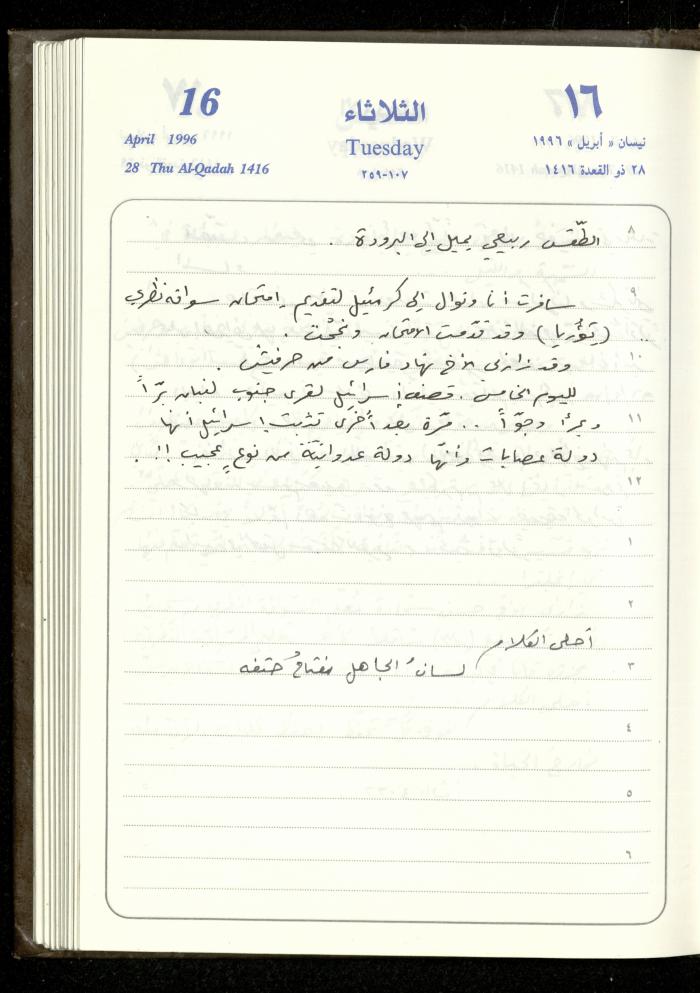 16
الثلاثاء
١٦
April 1996
Tuesday
نيسان « أبريل » ١٩٩٦
28 Thu Al-Qadah 1416
٢٥٩-١٠٧
٢٨ ذو القعدة ١٤١٦
٨
الطّقس ربيعي يميل إلى البرودة .
٩
سافرت أنا ونوال إلى كرمئيل لتقديم امتحان سواقة نظري
(تِؤُريا) وقد قدّمت الامتحان ونجحْت .
١٠
وقد زارني الأخ نهاد فارس من حرفيش .
لليوم الخامس . قصف إسرائيل لقرى جنوب لبنان برّاً
١١
وبحراً وجوّاً .. مَرّة بعد أُخرى تثبت إسرائيل أنها
دولة عصابات وأنّها دولة عدوانيّة من نوعٍ عجيب !! .
١٢
١
٢
أحلى الكلام
٣
لسانُ الجاهل مفتاحُ حتفه
٤
٥
٦